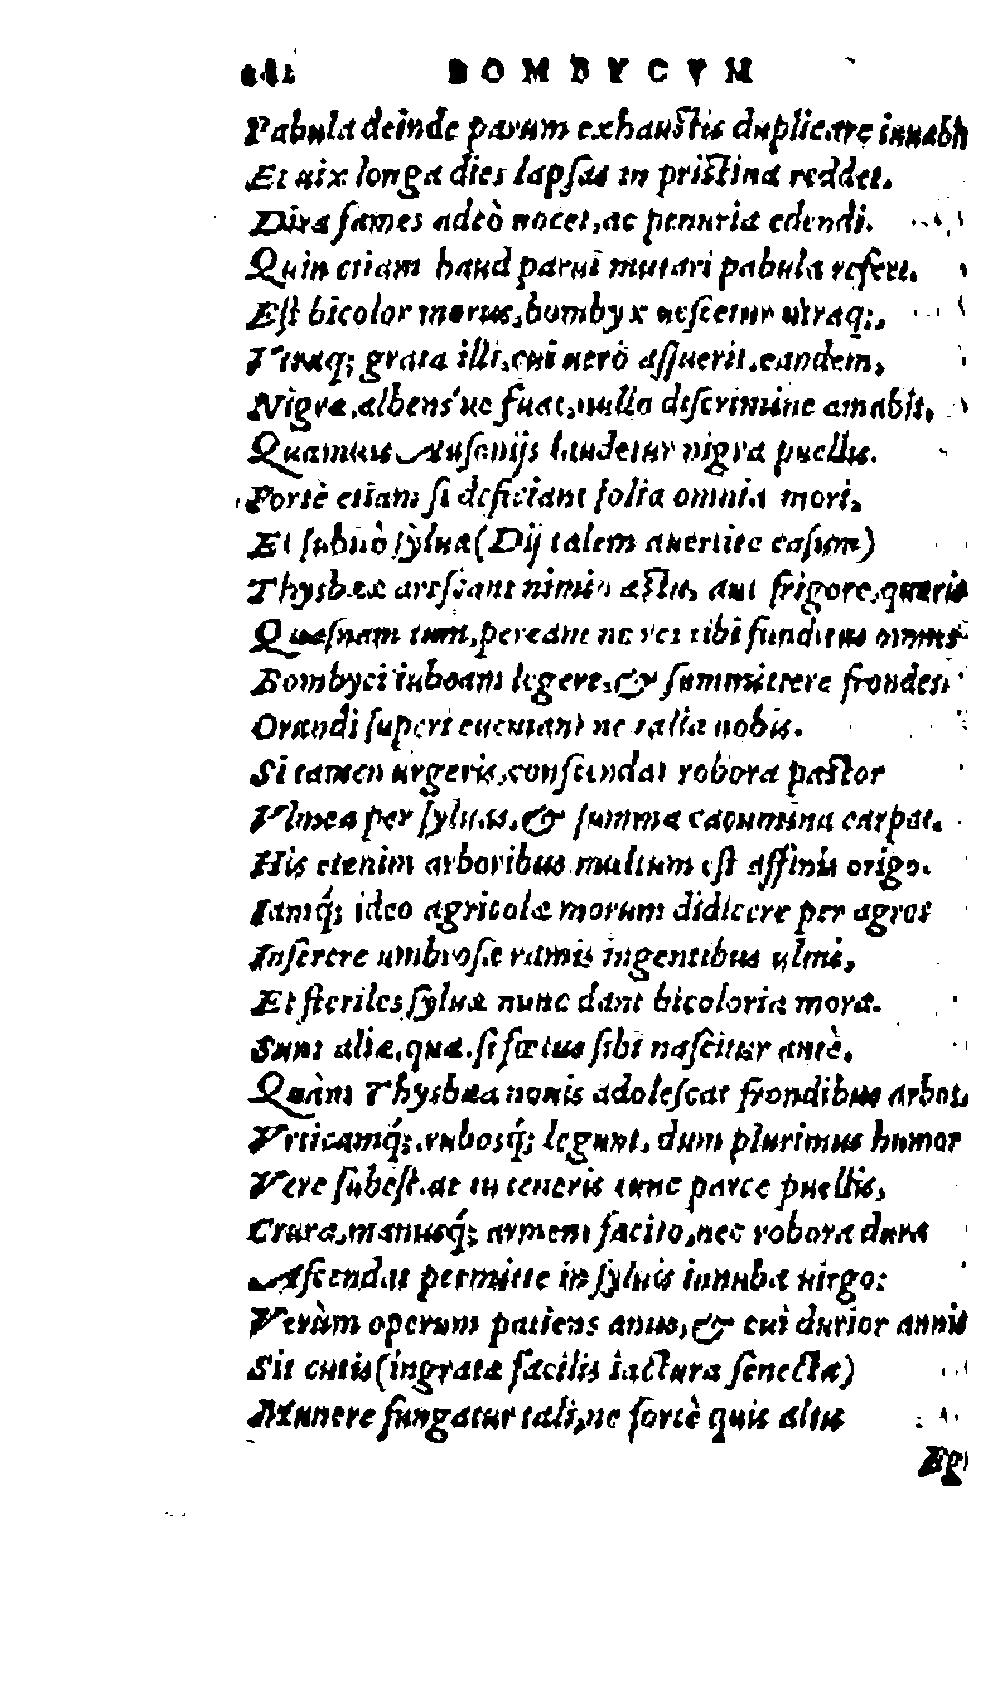 BOMBYCVM
Pabula deinde parum exhaustis duplicare iuuabit
Et uix longa dies lapsas in pristina reddet.
Dira fames adeò nocet, ac penuria edendi.
Quin etiam haud parui mutari pabula refert.
Est bicolor morus, bombyx uescetur utraq;,
Vtraq; grata illi, cui uerò assuerit, eandem,
Nigra, albens'ue fuat, nullo discrimine amabit,
Quamuis Ausonijs laudetur nigra puellis.
Fortè etiam si deficiant folia omnia mori,
Et subitò sylua (Dij talem auertite casum)
Thysbææ arescant nimio æstu, aut frigore, quæris
Quasnam tum, pereant ne res tibi funditus omnis
Bombyci iubeam legere, & summittere frondes?
Orandi superi eueniant ne talia nobis.
Si tamen urgeris, conscendat robora pastor
Vlmea per syluas, & summa cacumina carpat.
His etenim arboribus multum est affinis origo.
Iamq́; ideo agricolæ morum didicere per agros
Inserere umbrosæ ramis ingentibus ulmi,
Et steriles syluæ nunc dant bicoloria mora.
Sunt aliæ, quæ, si fœtus sibi nascitur antè,
Quàm Thysbæa nouis adolescat frondibus arbor,
Vrticamq́;, rubosq́; legunt, dum plurimus humor
Vere subest. at tu teneris tunc parce puellis,
Crura, manusq́; arment facito, nec robora dura
Ascendat permitte in syluis innuba uirgo:
Verùm operum patiens anus, & cui durior annis
Sit cutis (ingratæ facilis iactura senectæ)
Munere fungatur tali, ne fortè quis altis
Eg